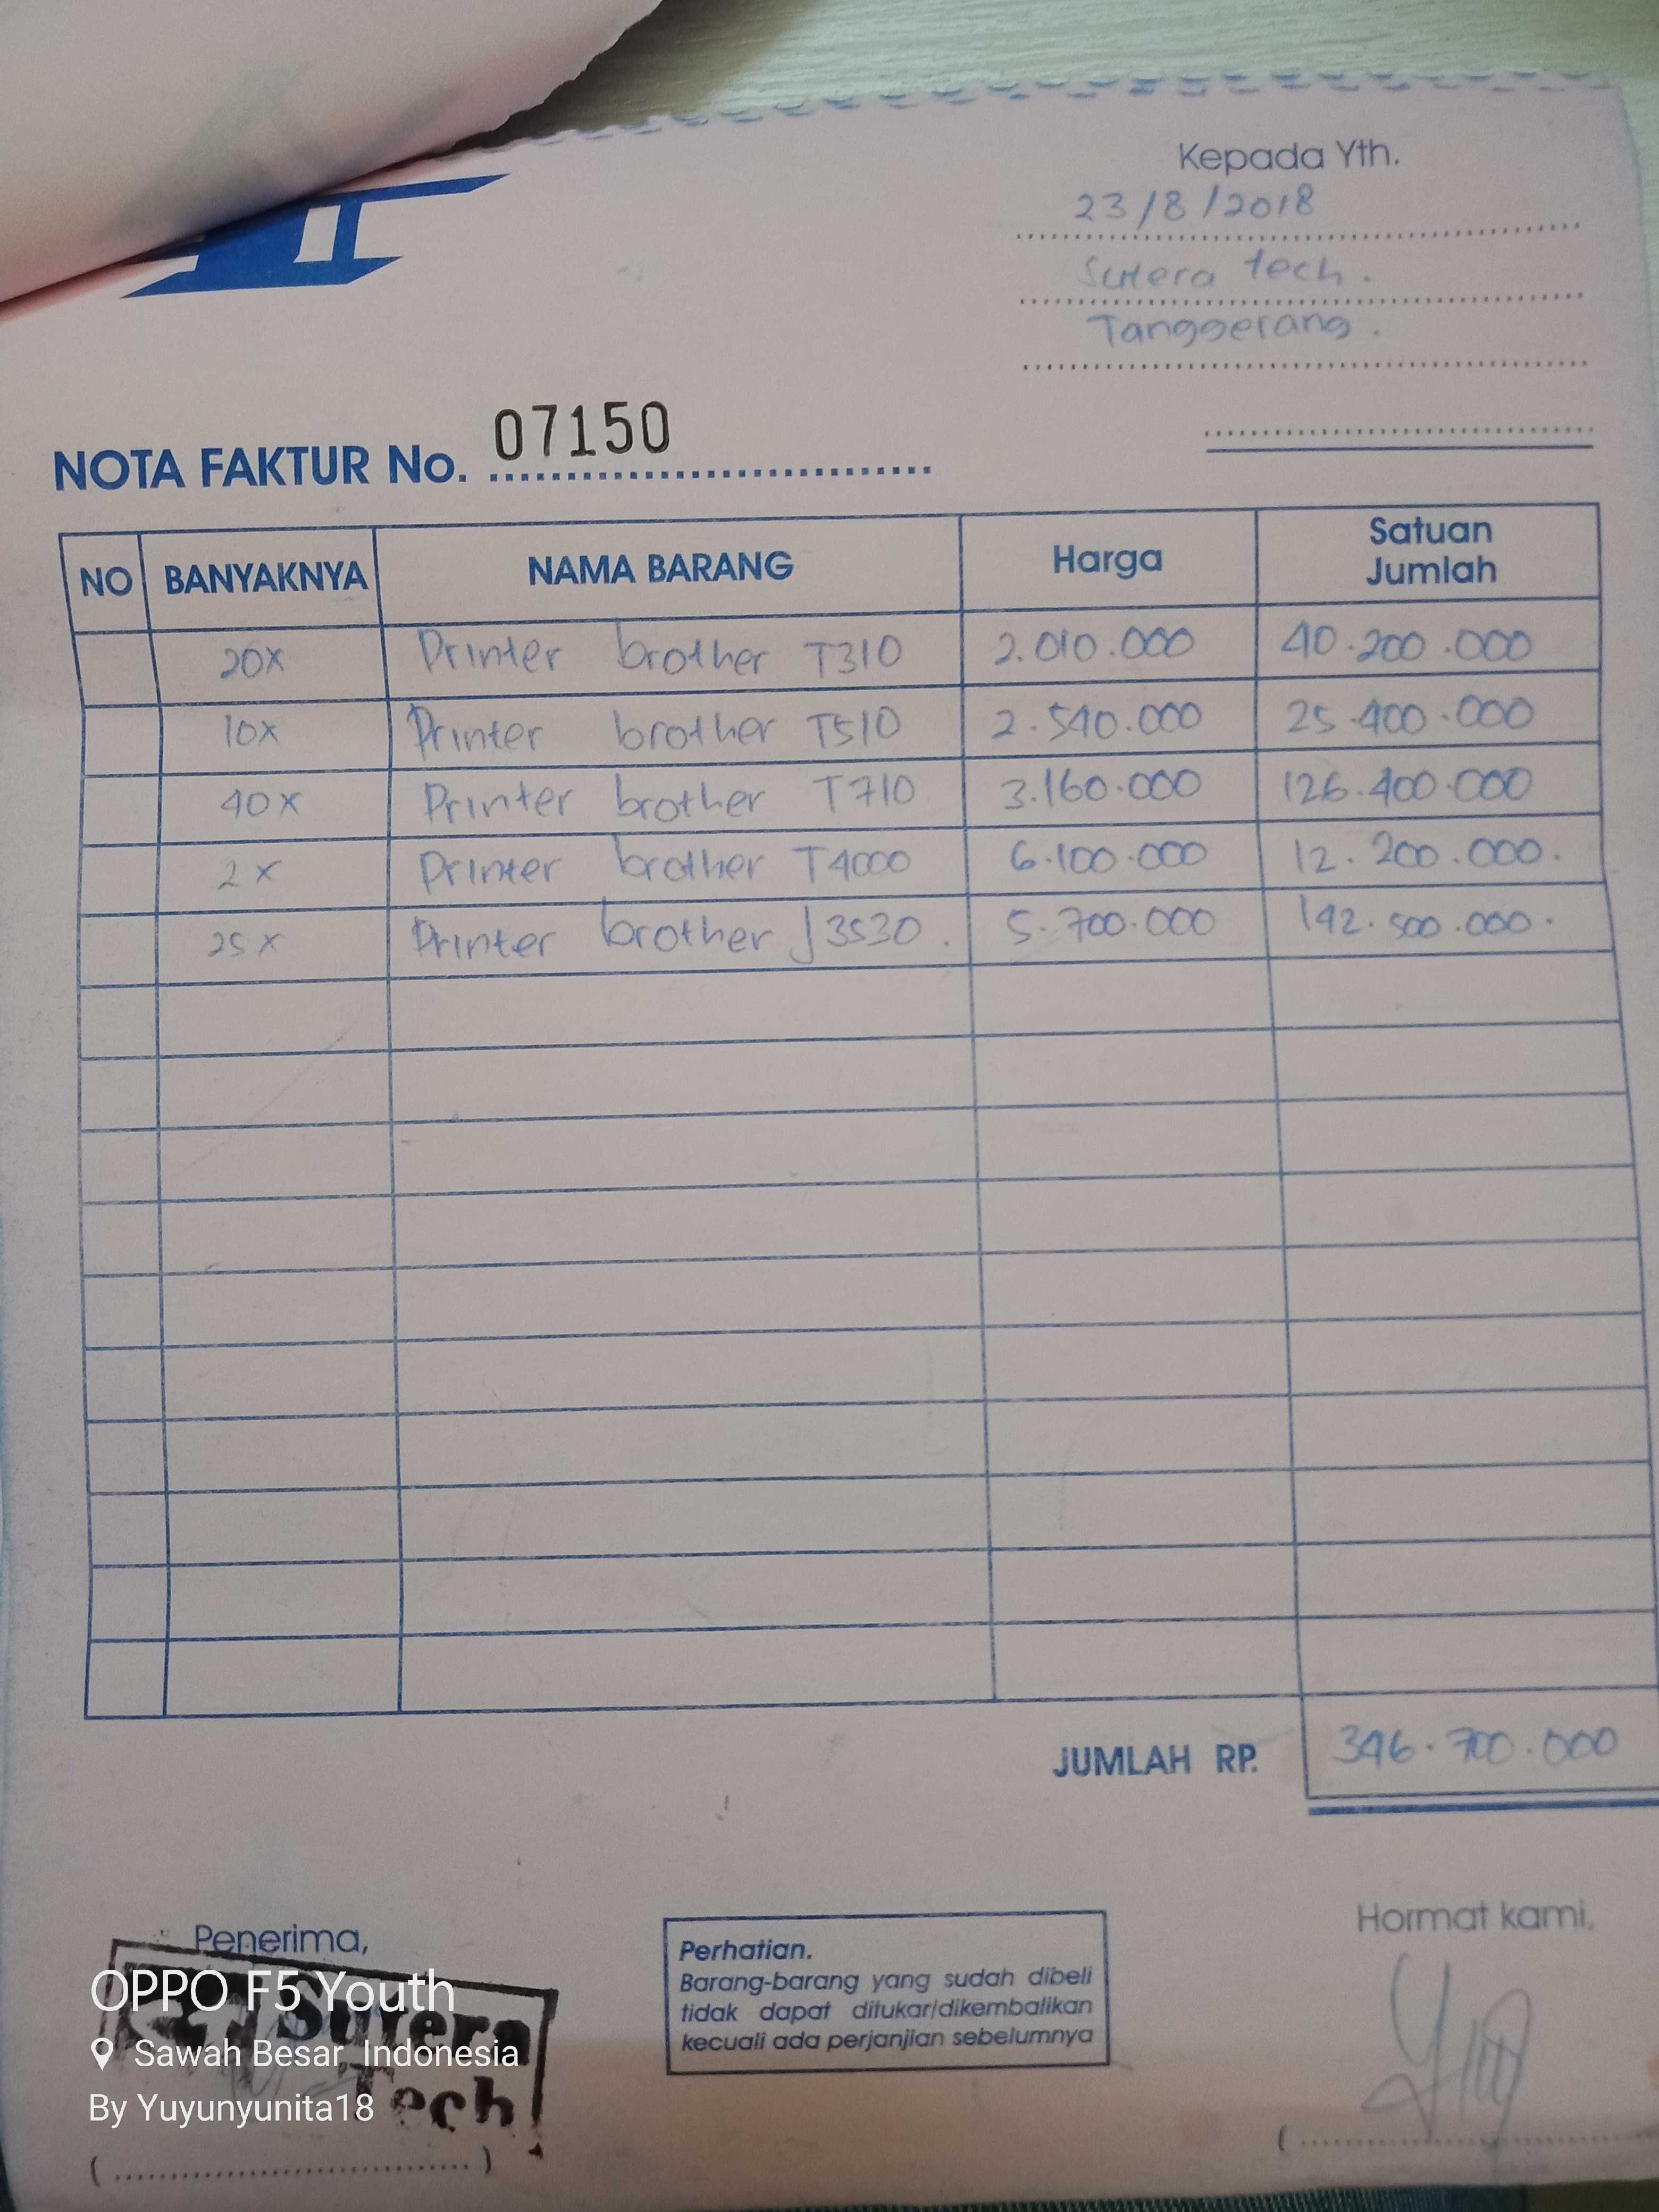 Kepada Yth.
23/8/2018
Sutera tech.
Tanggerang.
NOTA FAKTUR No. 07150
NO BANYAKNYA NAMA BARANG Harga Satuan Jumlah
20x Printer brother T310 2.010.000 40.200.000
10x Printer brother T510 2.540.000 25.400.000
40x Printer brother T710 3.160.000 126.400.000
2x Printer brother T4000 6.100.000 12.200.000.
25x Printer brother J3530. 5.700.000 142.500.000.
JUMLAH RP. 346.700.000
Penerima,
Sutera
Tech
Perhatian.
Barang-barang yang sudah dibeli
tidak dapat ditukar/dikembalikan
kecuali ada perjanjian sebelumnya
Hormat kami,
OPPO F5 Youth
Sawah Besar, Indonesia
By Yuyunyunita18